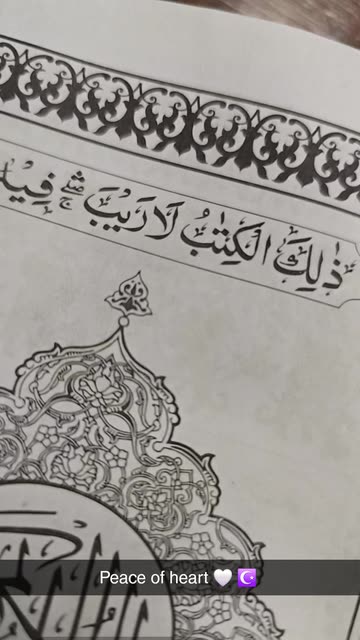 ذٰلِكَ الۡكِتٰبُ لَا رَيۡبَ ۛۖۚ فِيۡهِ
Peace of heart 🤍 ☪️